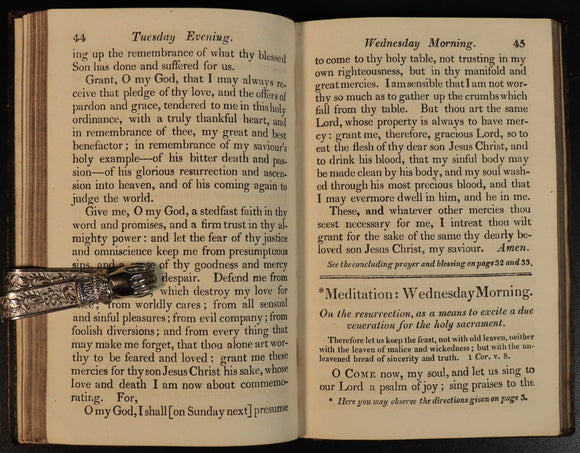 44 Tuesday Evening.
ing up the remembrance of what thy blessed
Son has done and suffered for us.
Grant, O my God, that I may always re-
ceive that pledge of thy love, and the offers of
pardon and grace, tendered to me in this holy
ordinance, with a truly thankful heart, and
in remembrance of thee, my great and best
benefactor; in remembrance of my saviour's
holy example—of his bitter death and pas-
sion—of his glorious resurrection and ascen-
sion into heaven, and of his coming again to
judge the world.
Give me, O my God, a stedfast faith in thy
word and promises, and a firm trust in thy al-
mighty power: and let the fear of thy justice
and omniscience keep me from presumptuous
sins, and a of thy goodness and mercy
despair. Defend me from
which destroy my love for
from worldly cares; from all sensual
and sinful pleasures; from evil company; from
foolish diversions; and from every thing that
may make me forget, that thou alone art wor-
thy to be feared and loved: grant me these
mercies for thy son Jesus Christ his sake, whose
love and death I am now about commemo-
rating. For,
O my God, I shall [on Sunday next] presume
Wednesday Morning. 45
to come to thy holy table, not trusting in my
own righteousness, but in thy manifold and
great mercies. I am sensible that I am not wor-
thy so much as to gather up the crumbs which
fall from thy table. But thou art the same
Lord, whose property is always to have mer-
cy: grant me, therefore, gracious Lord, so to
eat the flesh of thy dear son Jesus Christ, and
to drink his blood, that my sinful body may
be made clean by his body, and my soul wash-
ed through his most precious blood, and that
I may evermore dwell in him, and he in me.
These, and whatever other mercies thou
seest necessary for me, I intreat thou wilt
grant for the sake of the same thy dearly be-
loved son Jesus Christ, my saviour. Amen.
See the concluding prayer and blessing on page 32 and 33.
*Meditation: Wednesday Morning.
On the resurrection, as a means to excite a due
veneration for the holy sacrament.
Therefore let us keep the feast, not with old leaven, neither
with the leaven of malice and wickedness; but with the un-
leavened bread of sincerity and truth. 1 Cor. v. 8.
O COME now, my soul, and let us sing to
our Lord a psalm of joy; sing praises to the
* Here you may observe the directions given on page 3.